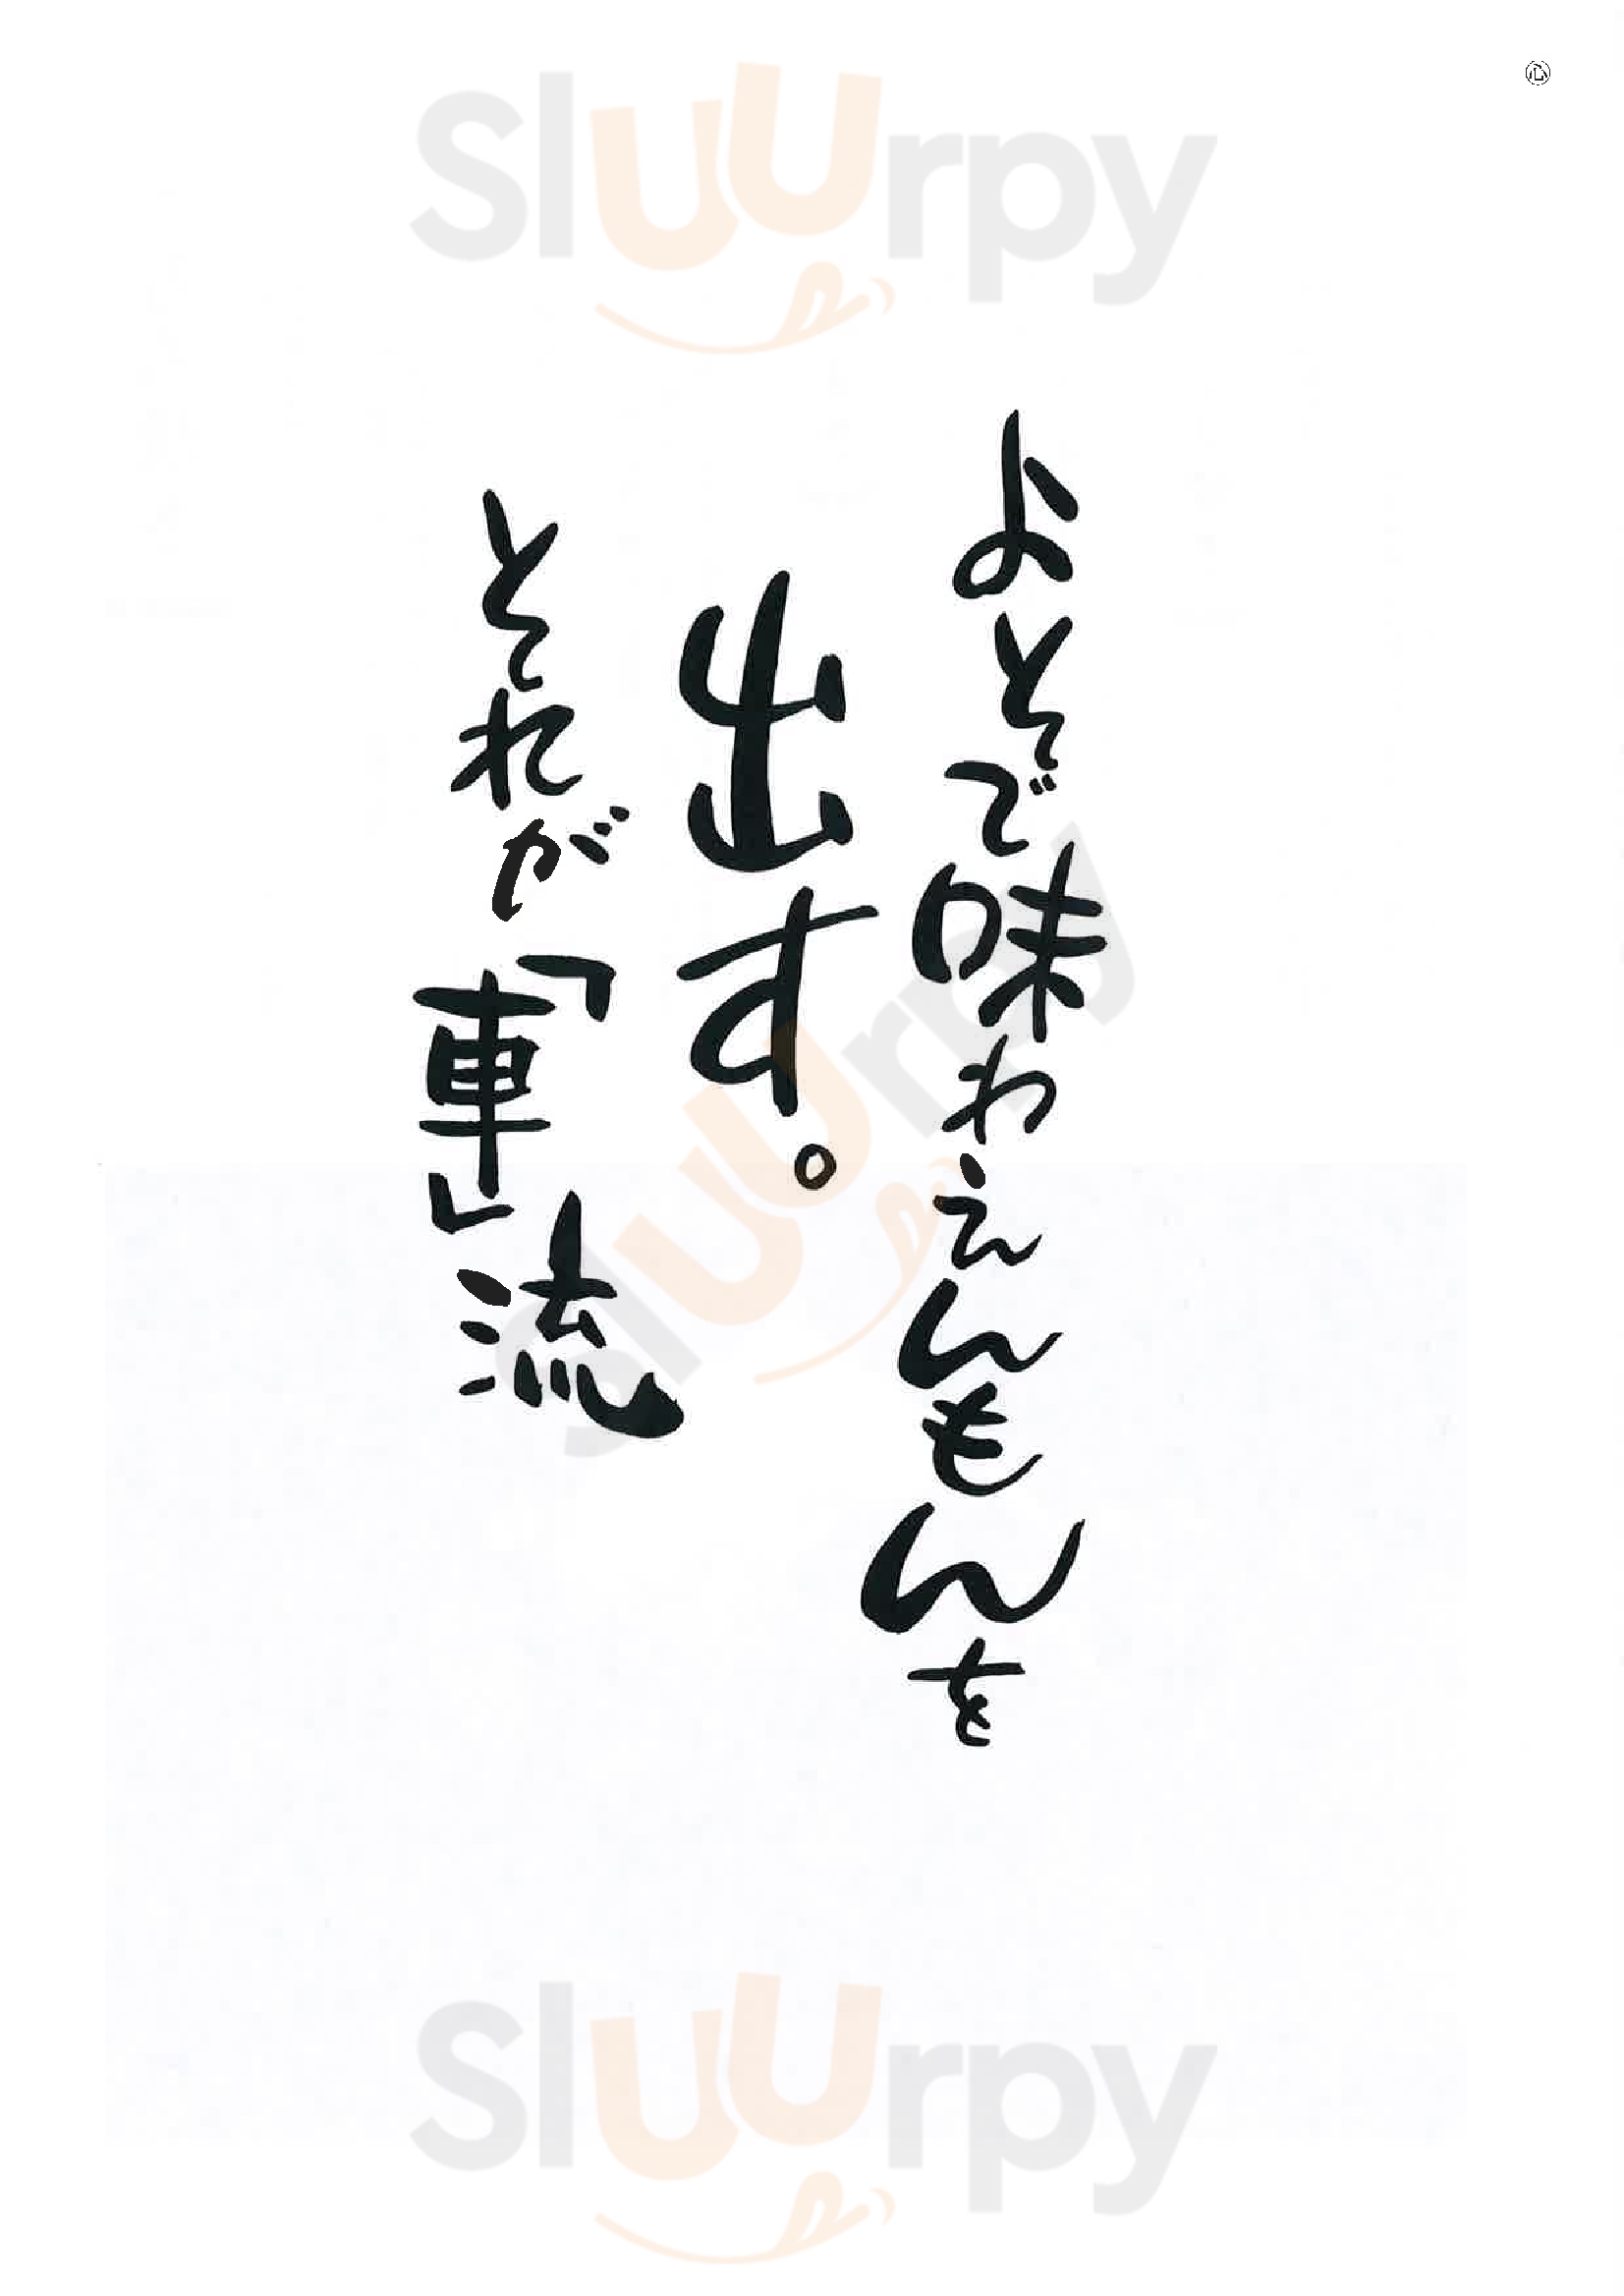 ㊝
よそで味わえんもんを
出す。
それが「車」流
Sluurpy
Sluurpy
Sluurpy